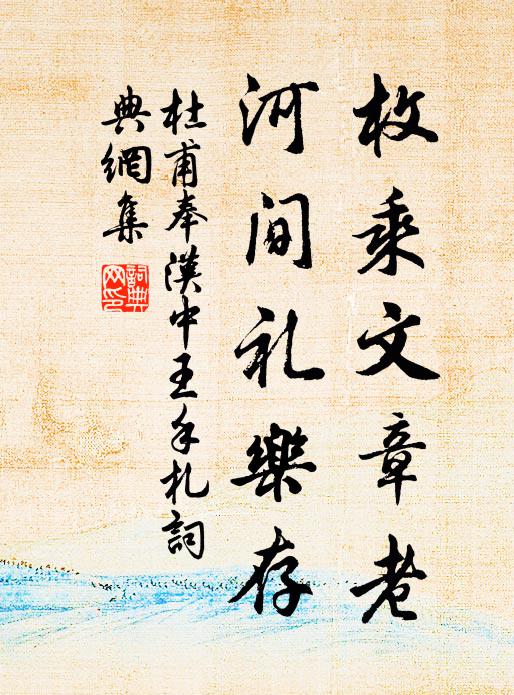 枚乘文章老
河间礼樂存
杜甫奉漢中王手札詞
典網集
詞典
网印